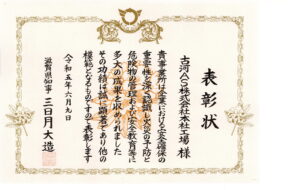 表彰状
古河AS株式会社本社工場 様
貴事業所は企業における安全確保の
重要性を深く認識し火災の予防と
危険物の管理および安全教育等に
多大の成果を収められました
その功績は誠に顕著であり他の
模範となるものですので表彰します
令和五年六月九日
滋賀県知事 三日月大造